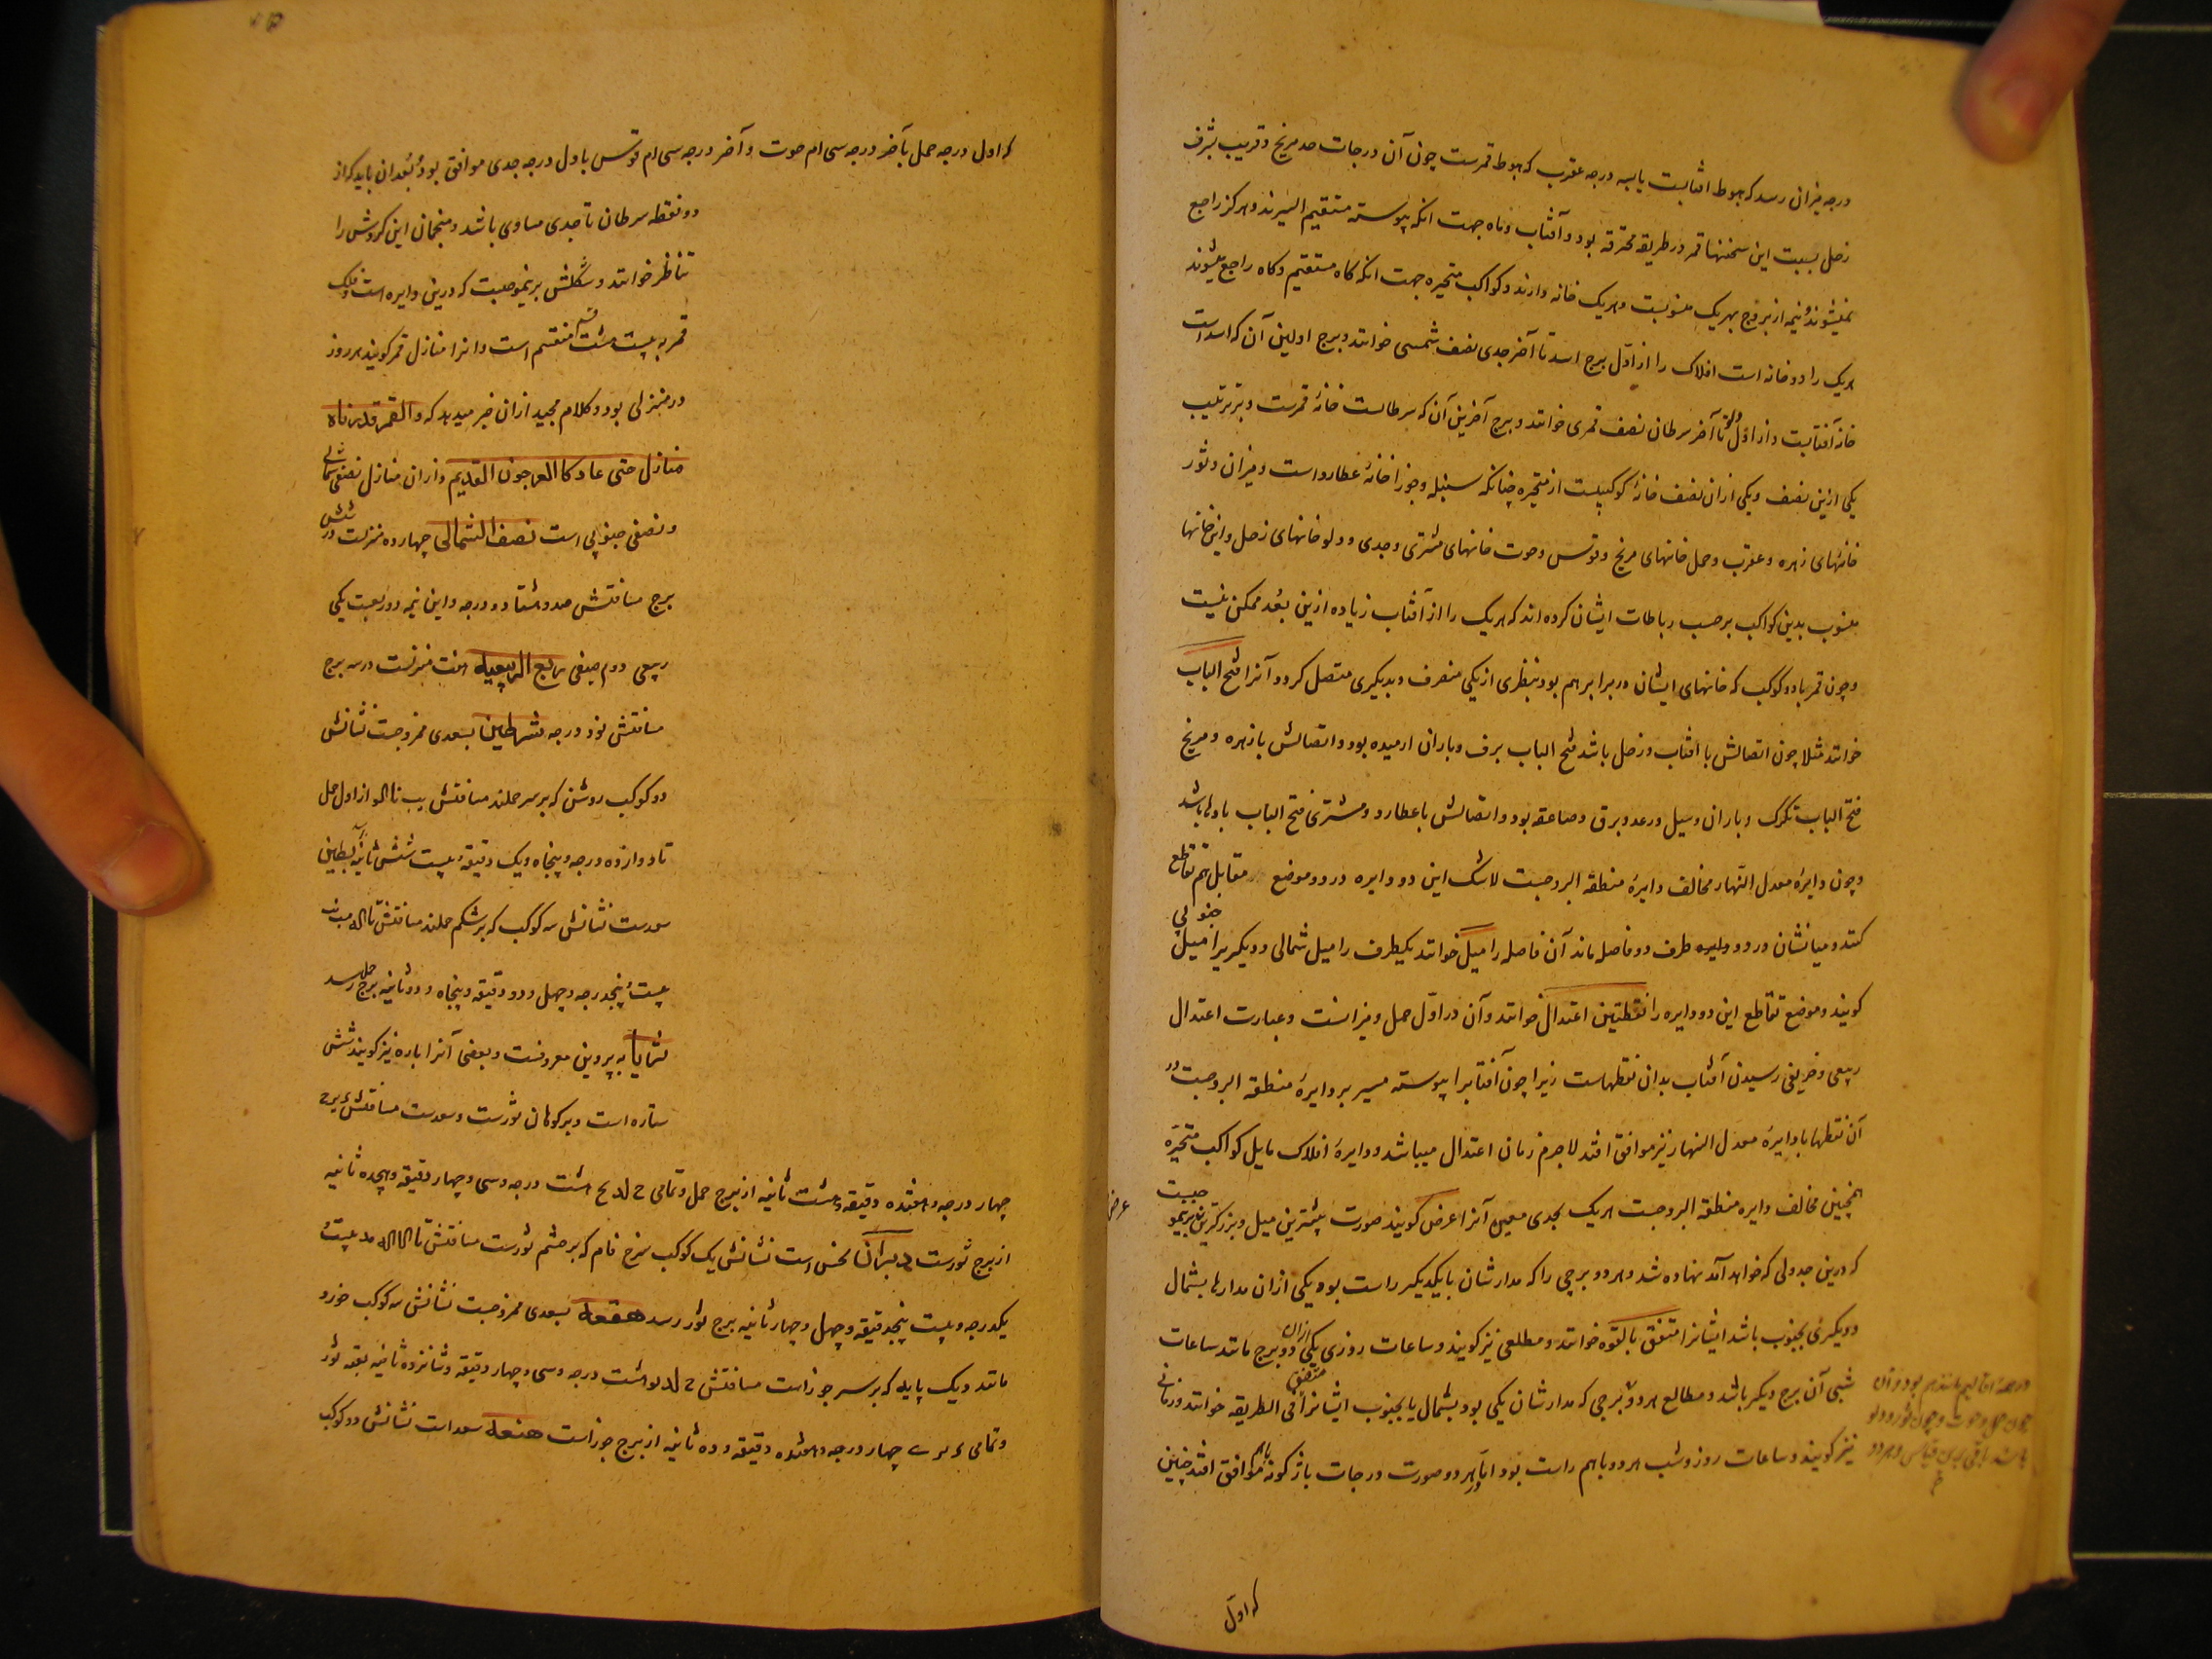 درجه میزان رسد که هبوط افتابست یا بسه درجه عقرب که هبوط قمرست چون آن درجات حد مریخ و قریب بشرف
زحل بسبب این سخنها قمر در طریقه محترقه بود و آفتاب و ماه جهت انکه پیوسته مستقیم السیرند و هرگز راجع
نمیشوند و نیمه از بروج بهریک منسوبست و هریک خانه دارند و کواکب متحیره جهت انکه کاه مستقیم و کاه راجع میشوند
هریک را دو خانه است افلاک را از اوّل برج اسد تا آخر جدی نصف شمسی خوانند و برج اولین آن که اسد است
خانه آفتابست و از اوّل دلو تا آخر سرطان نصف قمری خوانند و برج آخرین آن که سرطانست خانهٔ قمرست و بترتیب
یکی ازین نصف و یکی ازان نصف خانهٔ کوکبیست از متحیره چنانکه سنبله و جوزا خانهٔ عطارد است و میزان و ثور
خانهای زهره و عقرب و حمل خانهای مریخ و قوس و حوت خانهای مشتری و جدی و دلو خانهای زحل و این خانها
منسوب بدین کواکب برحسب رباطات ایشان کرده اند که هریک را از آفتاب زیاده ازین بعد ممکن نیست
و چون قمر با دو کوکب که خانهای ایشان در برابر هم بود بنظری از یکی منصرف و بدیکری متصل کردد آنرا فتح الباب
خوانند مثلا چون اتصالش با افتاب و زحل باشد فتح الباب برف و باران ارمیده بود و اتصالش با زهره و مریخ
فتح الباب تکرک و باران و سیل و رعد و برق و صاعقه بود و اتصالش با عطارد و مشتری فتح الباب بادها باشد
و چون دایرهٔ معدل النهار مخالف دایرهٔ منطقة البروجست لاشک این دو دایره در دو موضع مقابل هم تقاطع
کنند و میانشان در دو طرف دو فاصله ماند آن فاصله را میل خوانند یکطرف را میل شمالی و دیکریرا میل جنوبی
کویند و موضع تقاطع این دو دایره را نقطتین اعتدال خوانند و آن در اوّل حمل و میزانست و عبارت اعتدال
ربیعی و خریفی رسیدن آفتاب بدان نقطهاست زیرا چون آفتابرا پیوسته مسیر بر دایرهٔ منطقة البروجست در
آن نقطها با دایرهٔ معدل النهار نیز موافق افتد لاجرم زمان اعتدال میباشد و دایرهٔ افلاک مایل کواکب متحیّره
همچنین مخالف دایره منطقة البروجست هریک بحدی معین آنرا عرض کویند صورت پیشترین میل و بزرکترین عرض بریموجبست
که درین جدولی که خواهد آمد نهاده شد و هر دو برجی را که مدارشان با یکدیکر راست بود یکی ازان مدارها بشمال
و دیکری بجنوب باشد ایشانرا متفق بالقوه خوانند و مطلعی نیز کویند و ساعات روزی یکی ازان دو برج مانند ساعات
شبی آن برج دیکر باشد و مطالع هر دو برجی که مدارشان یکی بود بشمال یا بجنوب ایشانرا متفق فی الطریقه خوانند و زمانی
نیز کویند و ساعات روز و شب هر دو باهم راست بود اما در هر دو صورت درجات باژکونه باهم موافق افتد چنین
که اوّل
که اول درجه حمل بآخر درجه سی ام حوت و آخر درجه سی ام قوس باول درجه جدی موافق بود و بعدان باید که از
دو نقطه سرطان تا جدی مساوی باشد و منجمان این کردش را
تناظر خوانند و شکلش بریموجبست که درین دایره است و فلک
قمر به بیست هشت قسم منقسم است و انرا منازل قمر کویند هر روز
در منزلی بود و کلام مجید ازان خبر میدهد که والقمر قدرناه
منازل حتی عاد کالعرجون القدیم و ازان منازل نصفی شمالی
و نصفی جنوبی است نصف الشمالی چهارده منزلست در شش
برج مسافتش صد و هشتاد درجه و این نیمه دو ربعست یکی
ربیعی دوم صیفی ربع الربیعیه هفت منزلست در سه برج
مسافتش نود درجه شرطین بسعدی ممزوجست نشانش
دو کوکب روشن که بر سر حملند مسافتش یب نا کو از اول حمل
تا دوازده درجه و پنجاه و یک دقیقه و بیست شش ثانیه بطین
سعدست نشانش سه کوکب که بر شکم حملند مسافتش تا که مب نب
بیست و پنجدرجه و چهل و دو دقیقه و پنجاه و دو ثانیه برج حمل رسد
ثریا به پروین معروفست و بعضی آنرا باره نیز کویند شش
ستاره است و بر کوهان ثورست و سعدست مسافتش
چهار درجه و هفده دقیقه و هشت ثانیه از برج حمل و تمامی ح لد یح هشت درجه و سی و چهار دقیقه و هیجده ثانیه
از برج ثورست دبران نحس است نشانش یک کوکب سرخ فام که بر چشم ثورست مسافتش تا کا که مد بیست و
یکدرجه و بیست پنجدقیقه و چهل و چهار ثانیه برج ثور رسد هقعه بسعدی ممزوجست نشانش سه کوکب خورد
مانند دیک پایه که بر سر جوزاست مسافتش ح لد یو هشت درجه و سی و چهار دقیقه و شانزده ثانیه بقیه ثور
و تمامی چهار درجه و هفده دقیقه و ده ثانیه از برج جوزاست هنعه سعد است نشانش دو کوکب